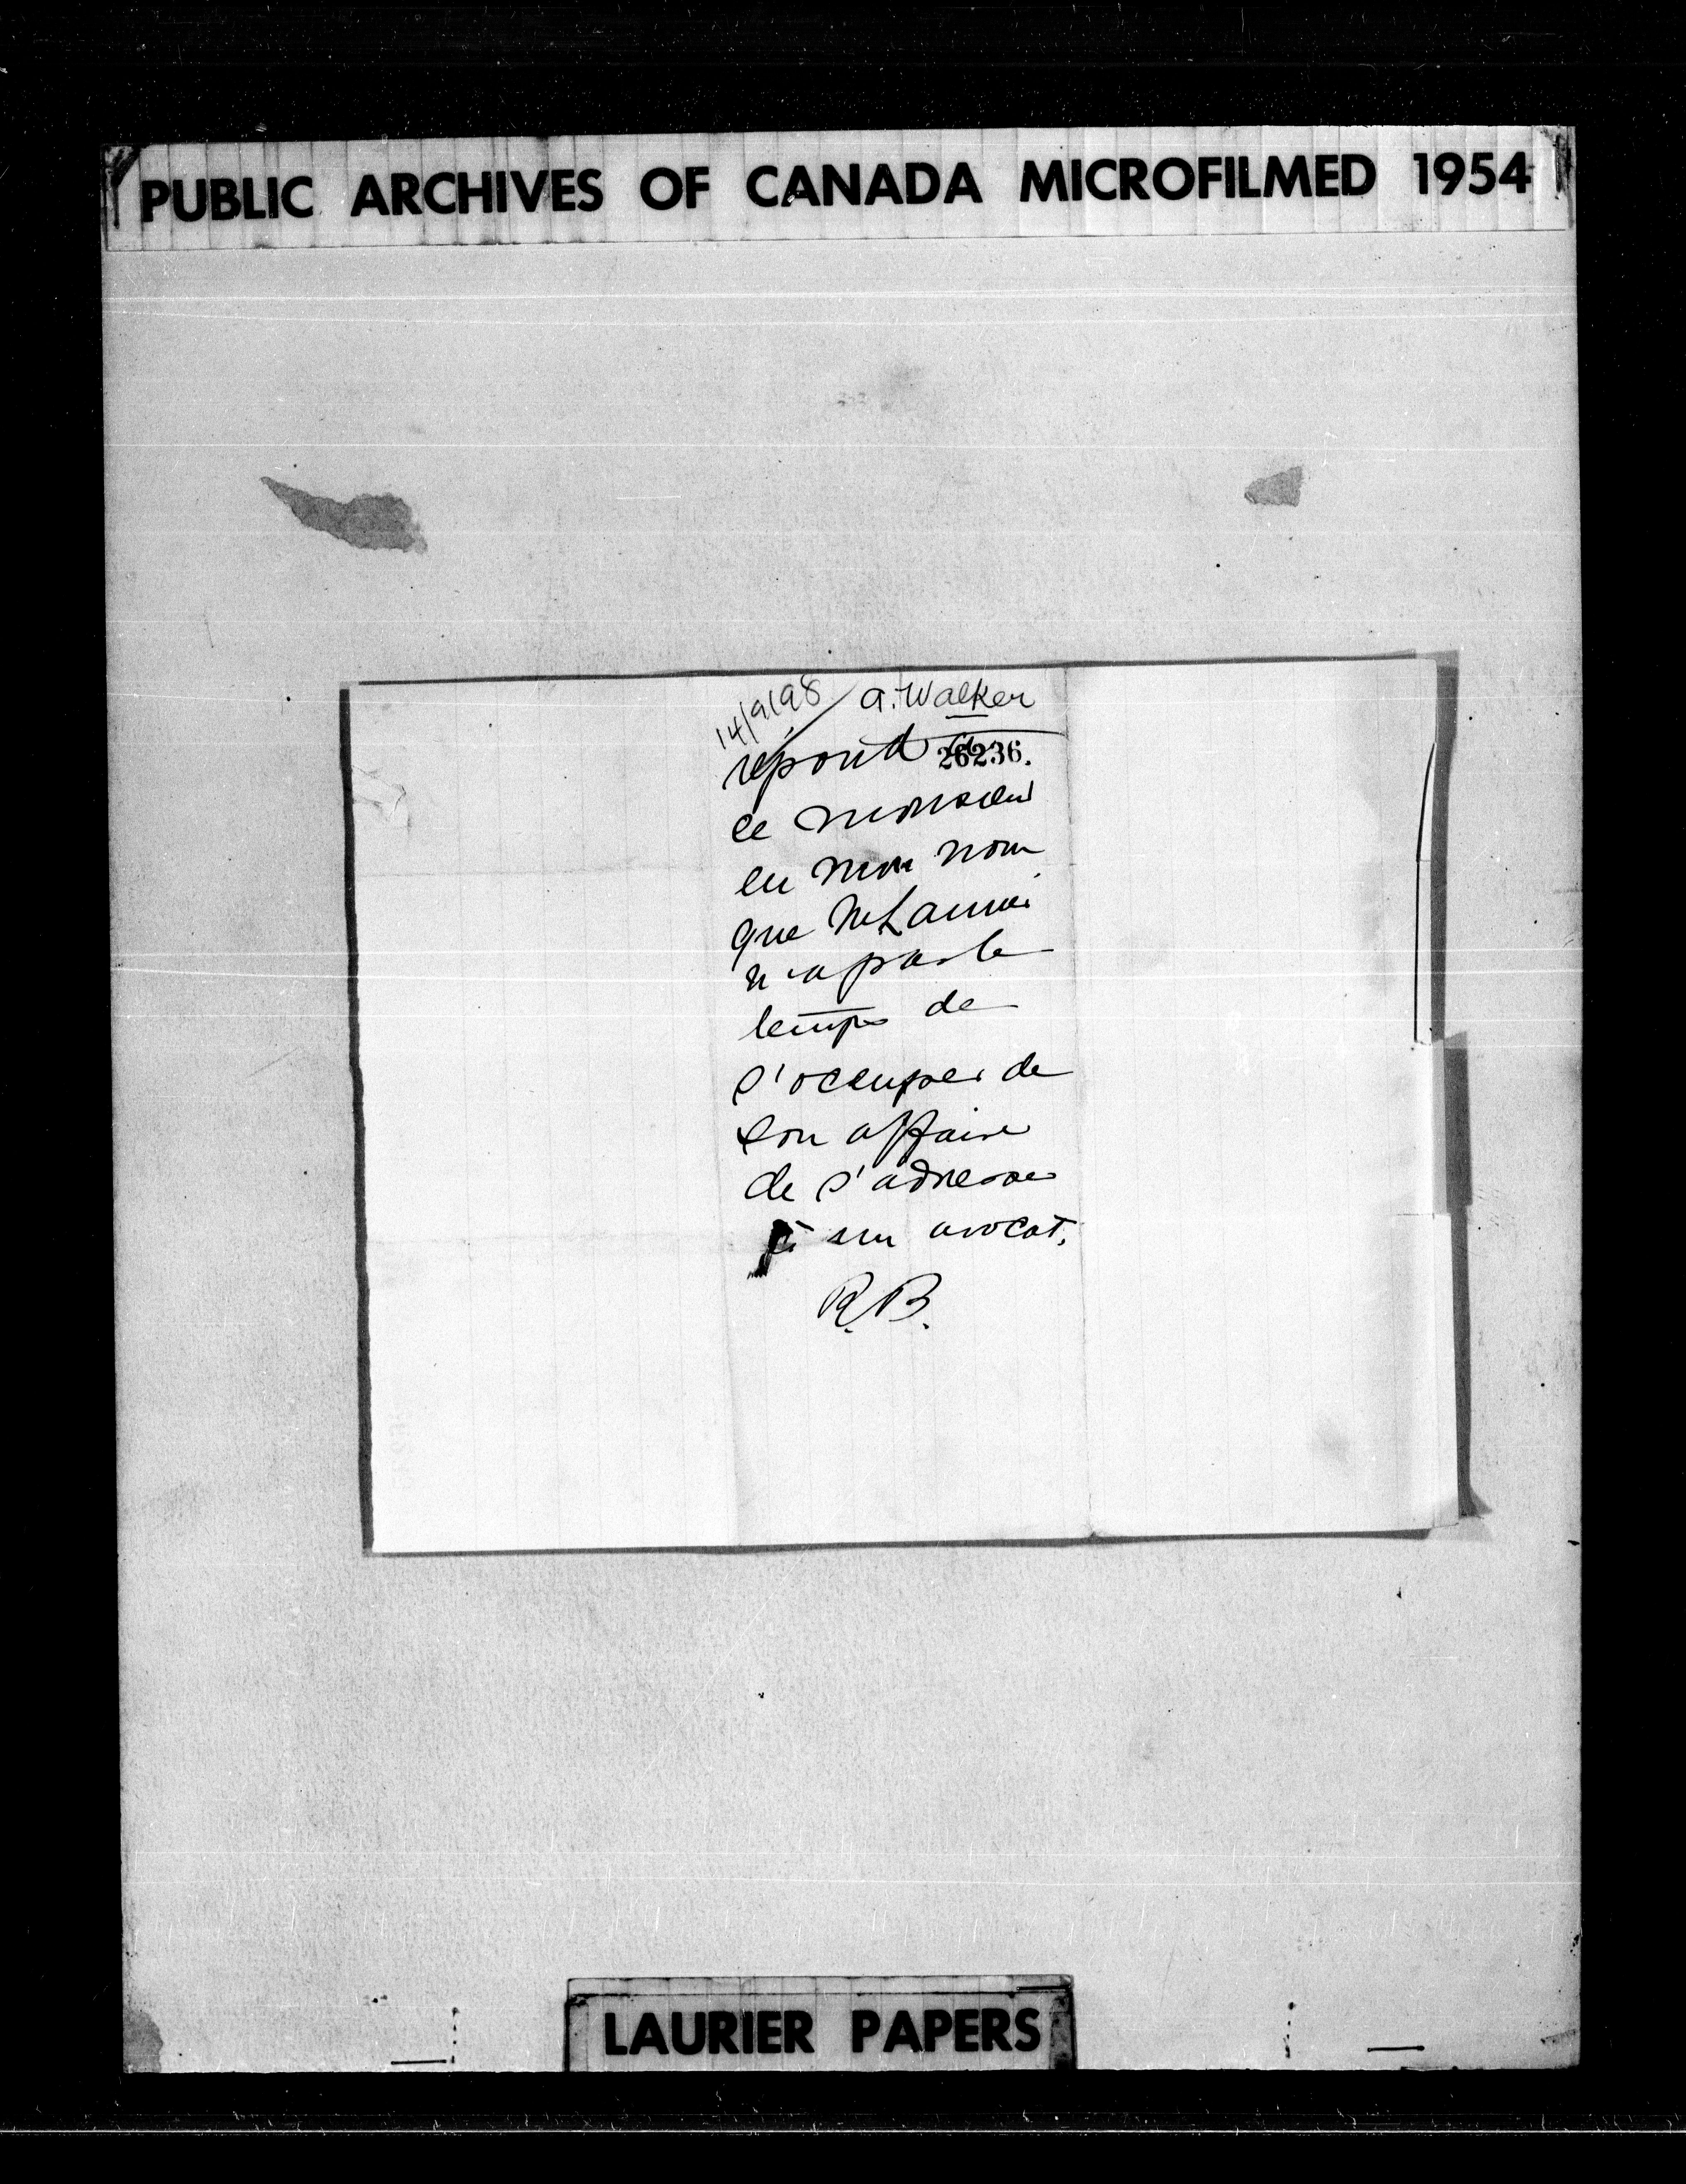 PUBLIC ARCHIVES OF CANADA MICROFILMED 1954
14/9/98 A. Walker
répond à
26236.
ce monsieur
en mon nom
que M Laurier
n'a pas le
temps de
s'occuper de
son affaire
de s'adresser
à un avocat.
R.B.
LAURIER PAPERS